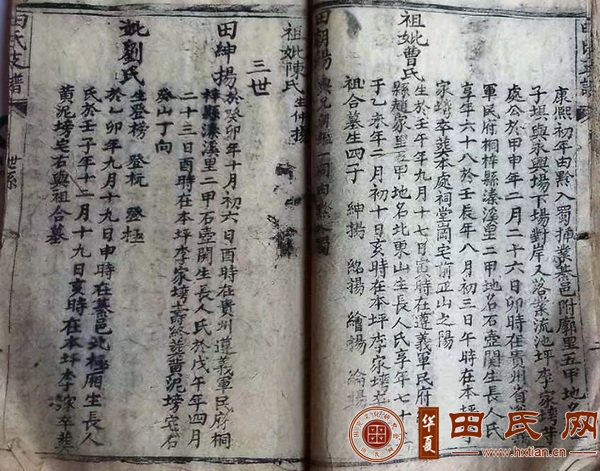 康熙初年由黔入蜀插業綦邑附廓里五甲地
子垻與永興揚下場對岸又落業流池坪李家
處公於甲申年二月二十六日卯時在貴州省
軍民府桐梓縣溱溪里二甲地名石壺関生長人氏
享年六十八於壬辰年八月初三日午時在本坪
家塆卒葬本處祠堂崗宅前正山之陽
祖妣曹氏
生於壬午年九月十七日寅時在遵義軍民府
縣趙家里五甲地名北東山生長人氏享年七十
於乙未年二月初十日亥時在本坪李家塆
祖合墓生四子 紳揚 紹揚 繪揚 綸揚
田朝陽
祖妣陳氏生仲揚
三世
田紳揚
於癸卯年十月初六日酉時在貴州遵義軍民府桐
梓縣溱溪里二甲石壺関生長人氏於戊午年四月
二十三日酉時在本坪李家塆壽終葬黄泥塝宅右
癸山丁向
妣劉氏
生登榜 登杬 登極
於乙卯年九月十九日申時在綦邑北極廂生長人
氏於壬子年十二月十九日亥時在本坪李家卒葬
黄泥塝宅右與祖合墓
田氏支譜
世系
华夏
田氏网
www.hxtian.cn